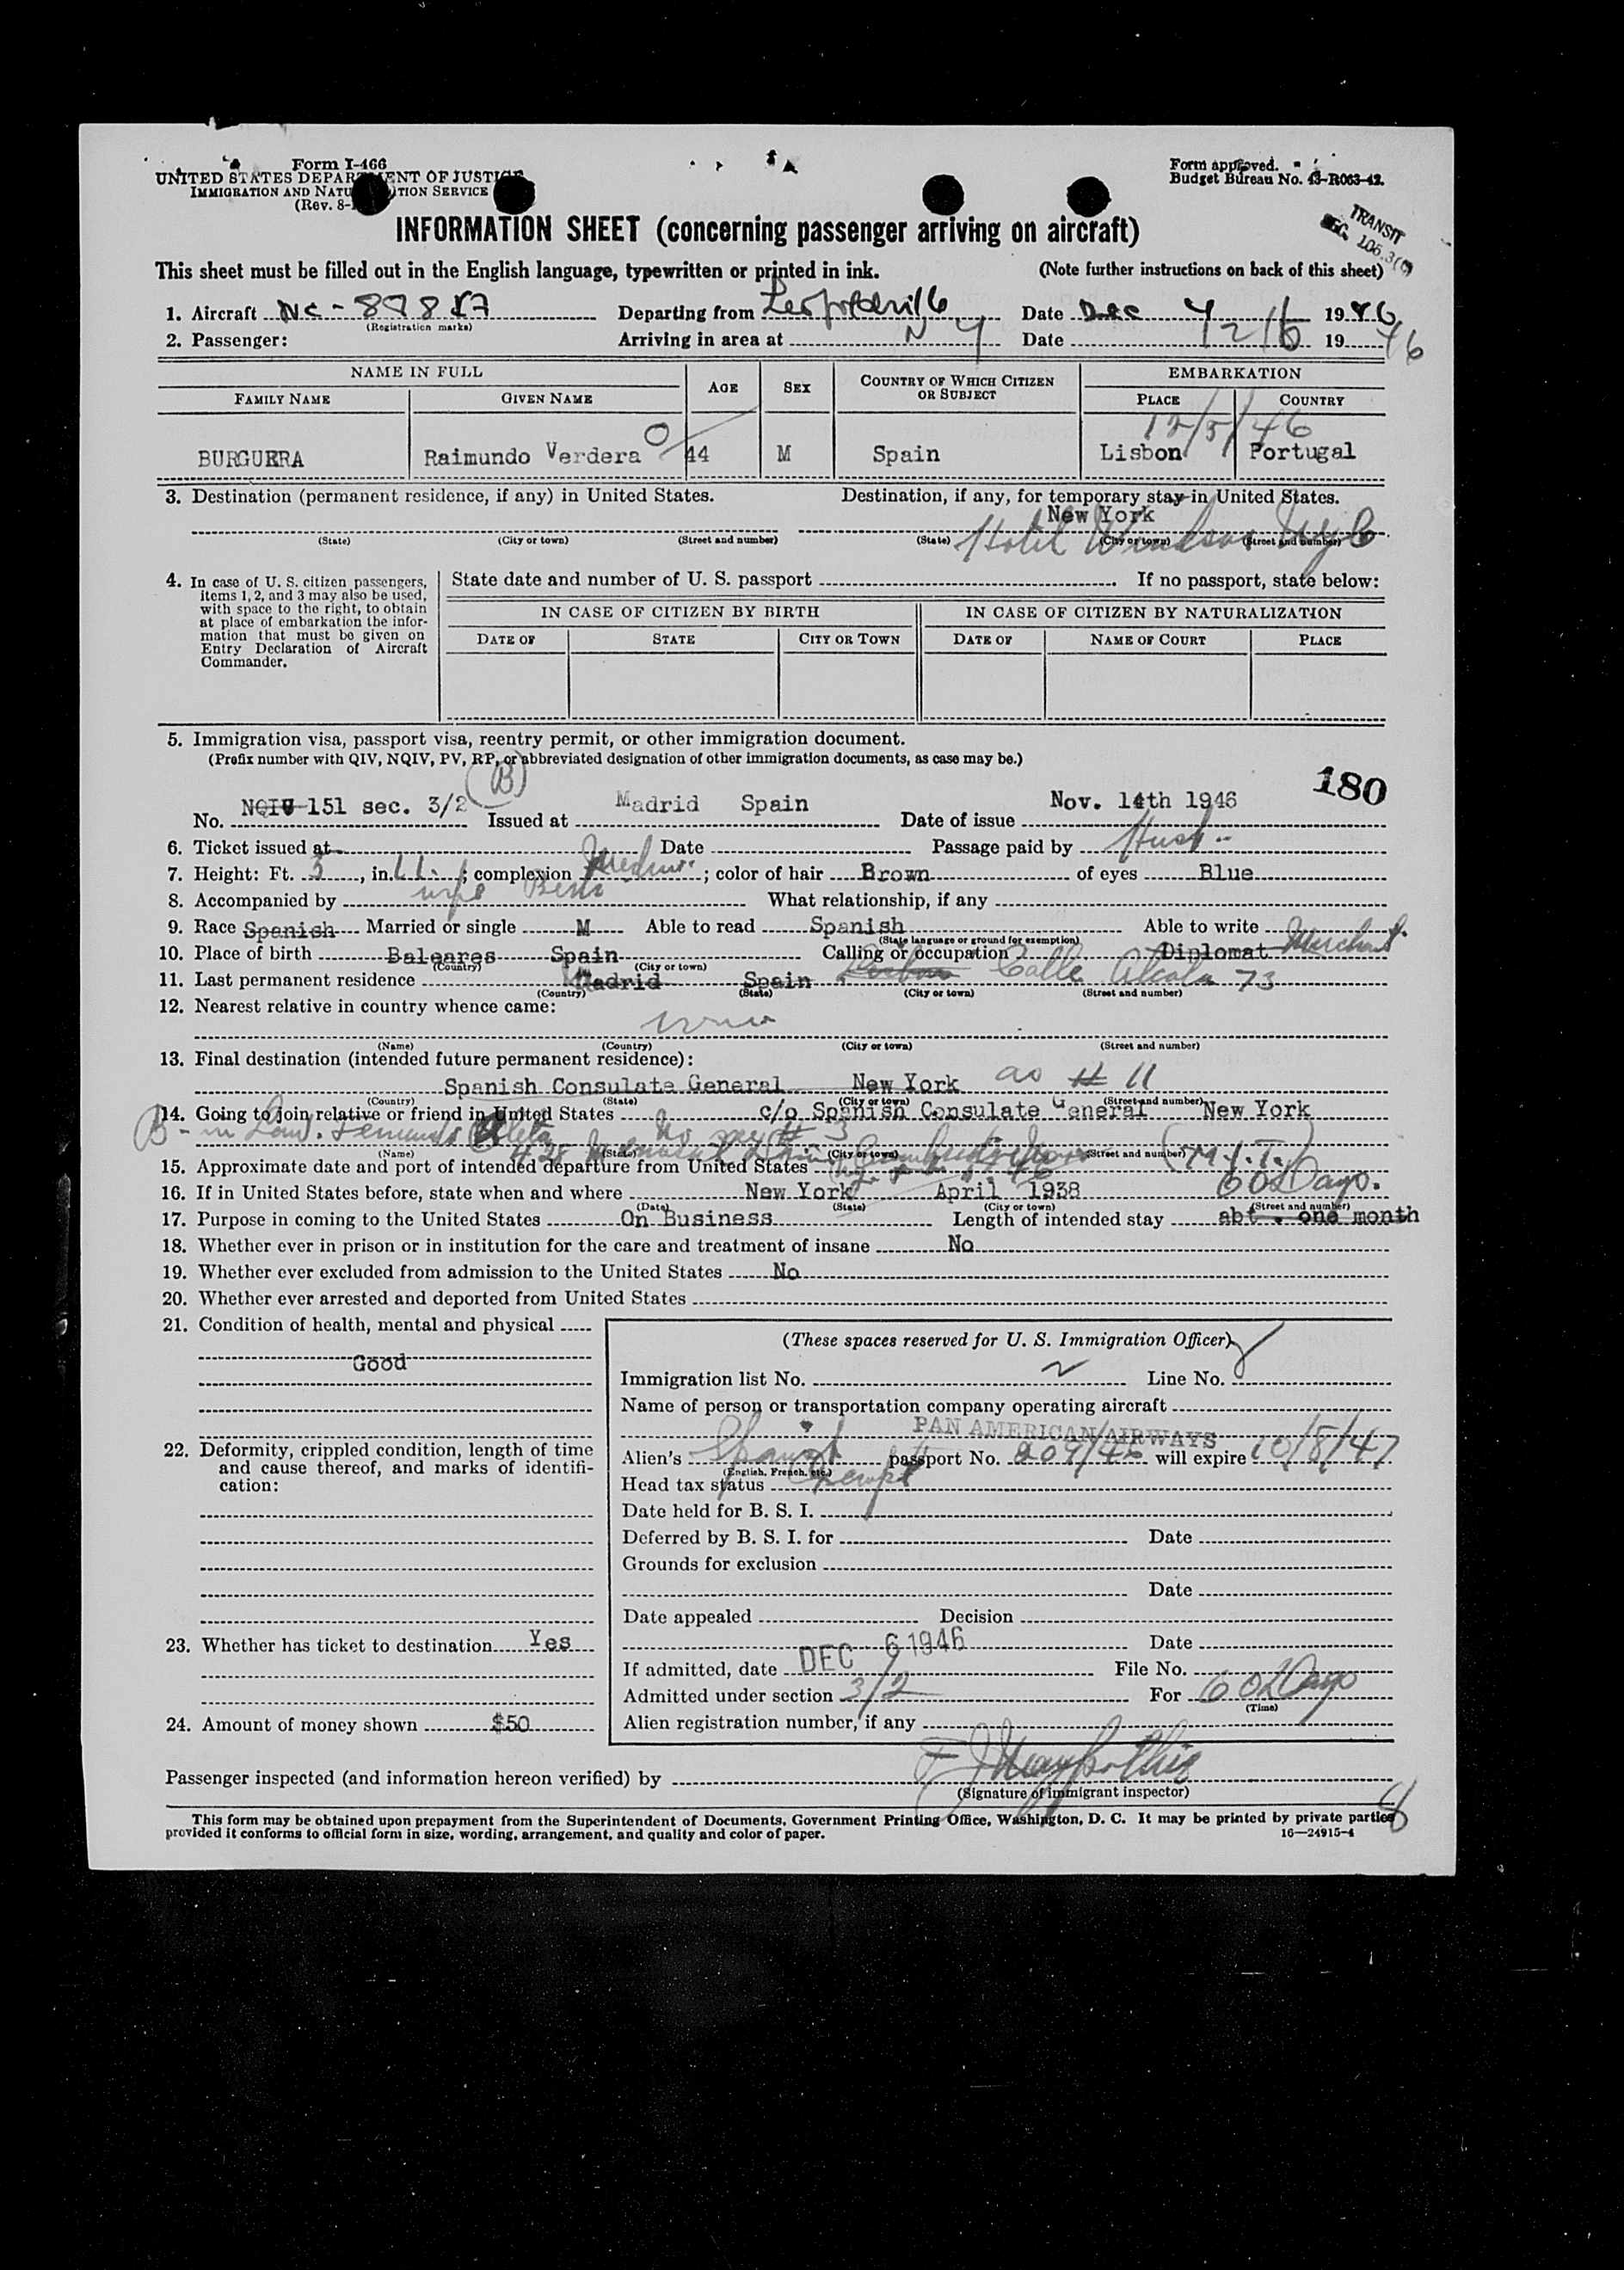 Form I-466
UNITED STATES DEPARTMENT OF JUSTICE
IMMIGRATION AND NATU TION SERVICE
(Rev. 8-
Form approved.
Budget Bureau No. 43-R063-42.
TRANSIT
INFORMATION SHEET (concerning passenger arriving on aircraft)
This sheet must be filled out in the English language, typewritten or printed in ink. (Note further instructions on back of this sheet)
1. Aircraft NC- Departing from Date Dec 4 1946
(Registration marks)
2. Passenger: Arriving in area at N Y Date 12/6 1946
NAME IN FULL AGE SEX COUNTRY OF WHICH CITIZEN OR SUBJECT EMBARKATION
FAMILY NAME GIVEN NAME PLACE COUNTRY
12/5/46
BURGUERA Raimundo Verdera 44 M Spain Lisbon Portugal
3. Destination (permanent residence, if any) in United States. Destination, if any, for temporary stay in United States.
New York
Hotel Windsor
(State) (City or town) (Street and number) (State) (City or town) (Street and number)
4. In case of U. S. citizen passengers, items 1, 2, and 3 may also be used, with space to the right, to obtain at place of embarkation the information that must be given on Entry Declaration of Aircraft Commander.
State date and number of U. S. passport If no passport, state below:
IN CASE OF CITIZEN BY BIRTH IN CASE OF CITIZEN BY NATURALIZATION
DATE OF STATE CITY OR TOWN DATE OF NAME OF COURT PLACE
5. Immigration visa, passport visa, reentry permit, or other immigration document.
(Prefix number with QIV, NQIV, PV, RP, or abbreviated designation of other immigration documents, as case may be.)
(B)
180
No. NQIV 151 sec. 3/2 Issued at Madrid Spain Date of issue Nov. 14th 1946
6. Ticket issued at Date Passage paid by
7. Height: Ft. 5, in. 11; complexion Medium; color of hair Brown of eyes Blue
8. Accompanied by wife What relationship, if any
9. Race Spanish Married or single M Able to read Spanish Able to write
(State language or ground for exemption)
10. Place of birth Baleares Spain Calling or occupation Diplomat Merchant
(Country) (City or town)
11. Last permanent residence Madrid Spain Calle Alcala 73
(Country) (State) (City or town) (Street and number)
12. Nearest relative in country whence came:
(Name) (Country) (City or town) (Street and number)
13. Final destination (intended future permanent residence):
Spanish Consulate General New York as # 11
(Country) (State) (City or town) (Street and number)
14. Going to join relative or friend in United States c/o Spanish Consulate General New York
B - in Law.
(Name) (State) (City or town) (Street and number) (M.I.T.)
15. Approximate date and port of intended departure from United States
16. If in United States before, state when and where New York April 1938 60 Days.
(Date) (State) (City or town) (Street and number)
17. Purpose in coming to the United States On Business Length of intended stay abt. one month
18. Whether ever in prison or in institution for the care and treatment of insane No
19. Whether ever excluded from admission to the United States No
20. Whether ever arrested and deported from United States
21. Condition of health, mental and physical
Good
22. Deformity, crippled condition, length of time and cause thereof, and marks of identification:
23. Whether has ticket to destination Yes
24. Amount of money shown $50
(These spaces reserved for U. S. Immigration Officer)
Immigration list No. 2 Line No. 8
Name of person or transportation company operating aircraft
PAN AMERICAN AIRWAYS
Alien's Spanish passport No. 209/46 will expire 10/8/47
(English, French, etc.)
Head tax status Exempt
Date held for B. S. I.
Deferred by B. S. I. for Date
Grounds for exclusion
Date
Date appealed Decision
Date
If admitted, date DEC 6 1946 File No.
Admitted under section 3/2 For 60 Days
(Time)
Alien registration number, if any
Passenger inspected (and information hereon verified) by
(Signature of immigrant inspector)
This form may be obtained upon prepayment from the Superintendent of Documents, Government Printing Office, Washington, D. C. It may be printed by private parties
provided it conforms to official form in size, wording, arrangement, and quality and color of paper. 16—24915-4